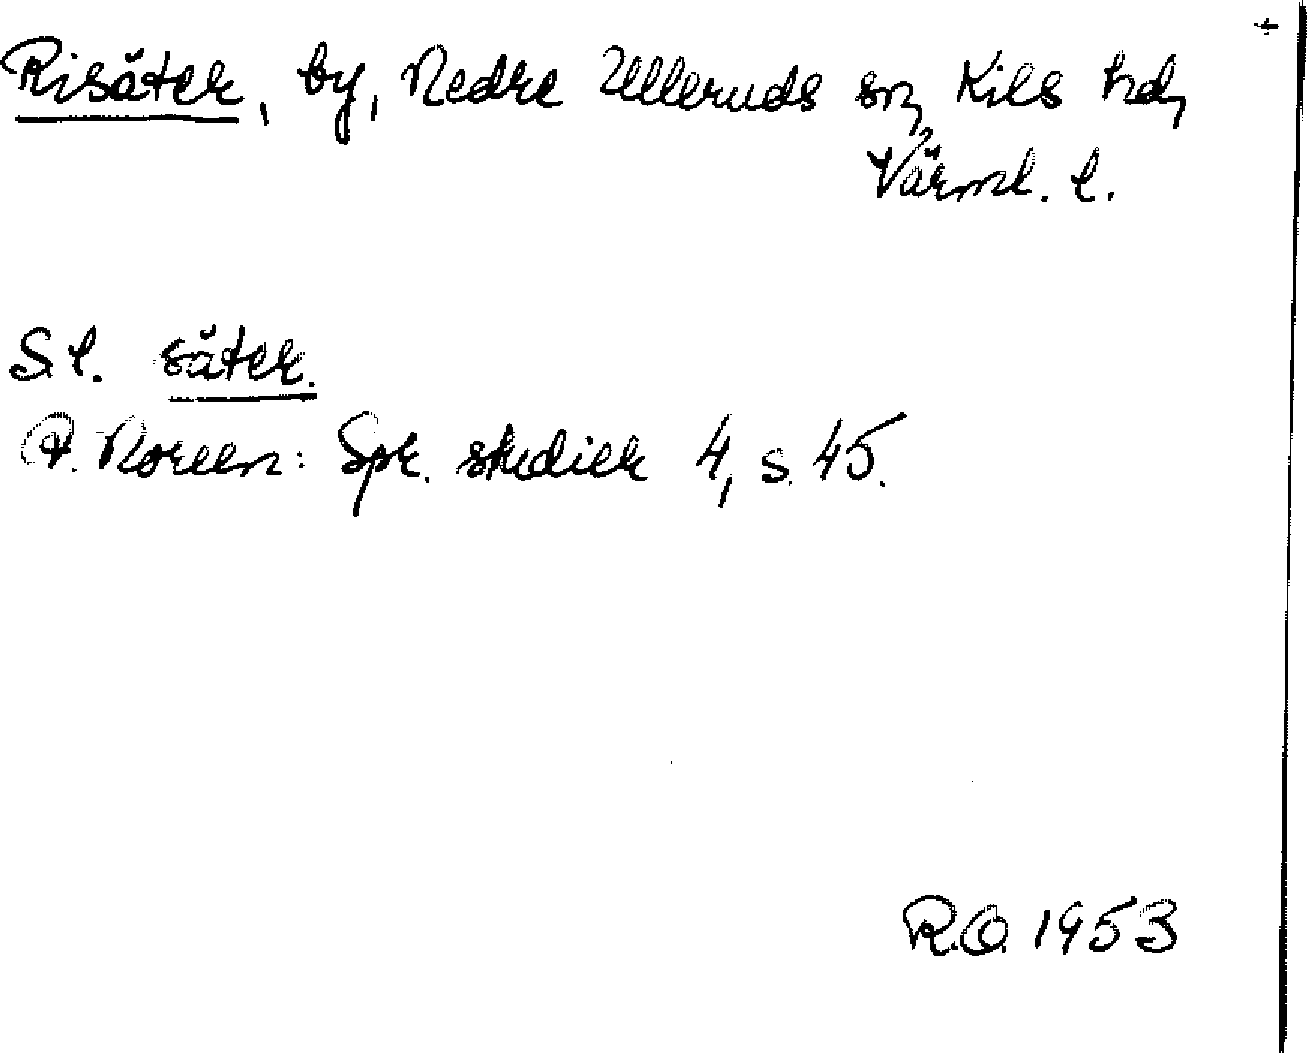 +
Risäter, by, Nedre Ulleruds sn, Kils hd,
Värml. l.
S.l. säter.
A. Noreen: Spr. studier 4, s. 45.
R.O. 1953